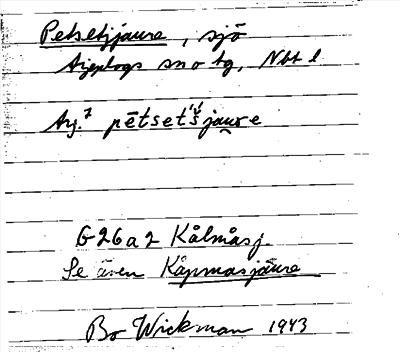 Petsetjjaure, sjö
Arjeplogs sn o tg, Nbt l
Arj.⁷ pētset's̆jau̯re
G26a2 Kålmåsj.
Se även Kåpmasjaure
Bo Wickman 1943